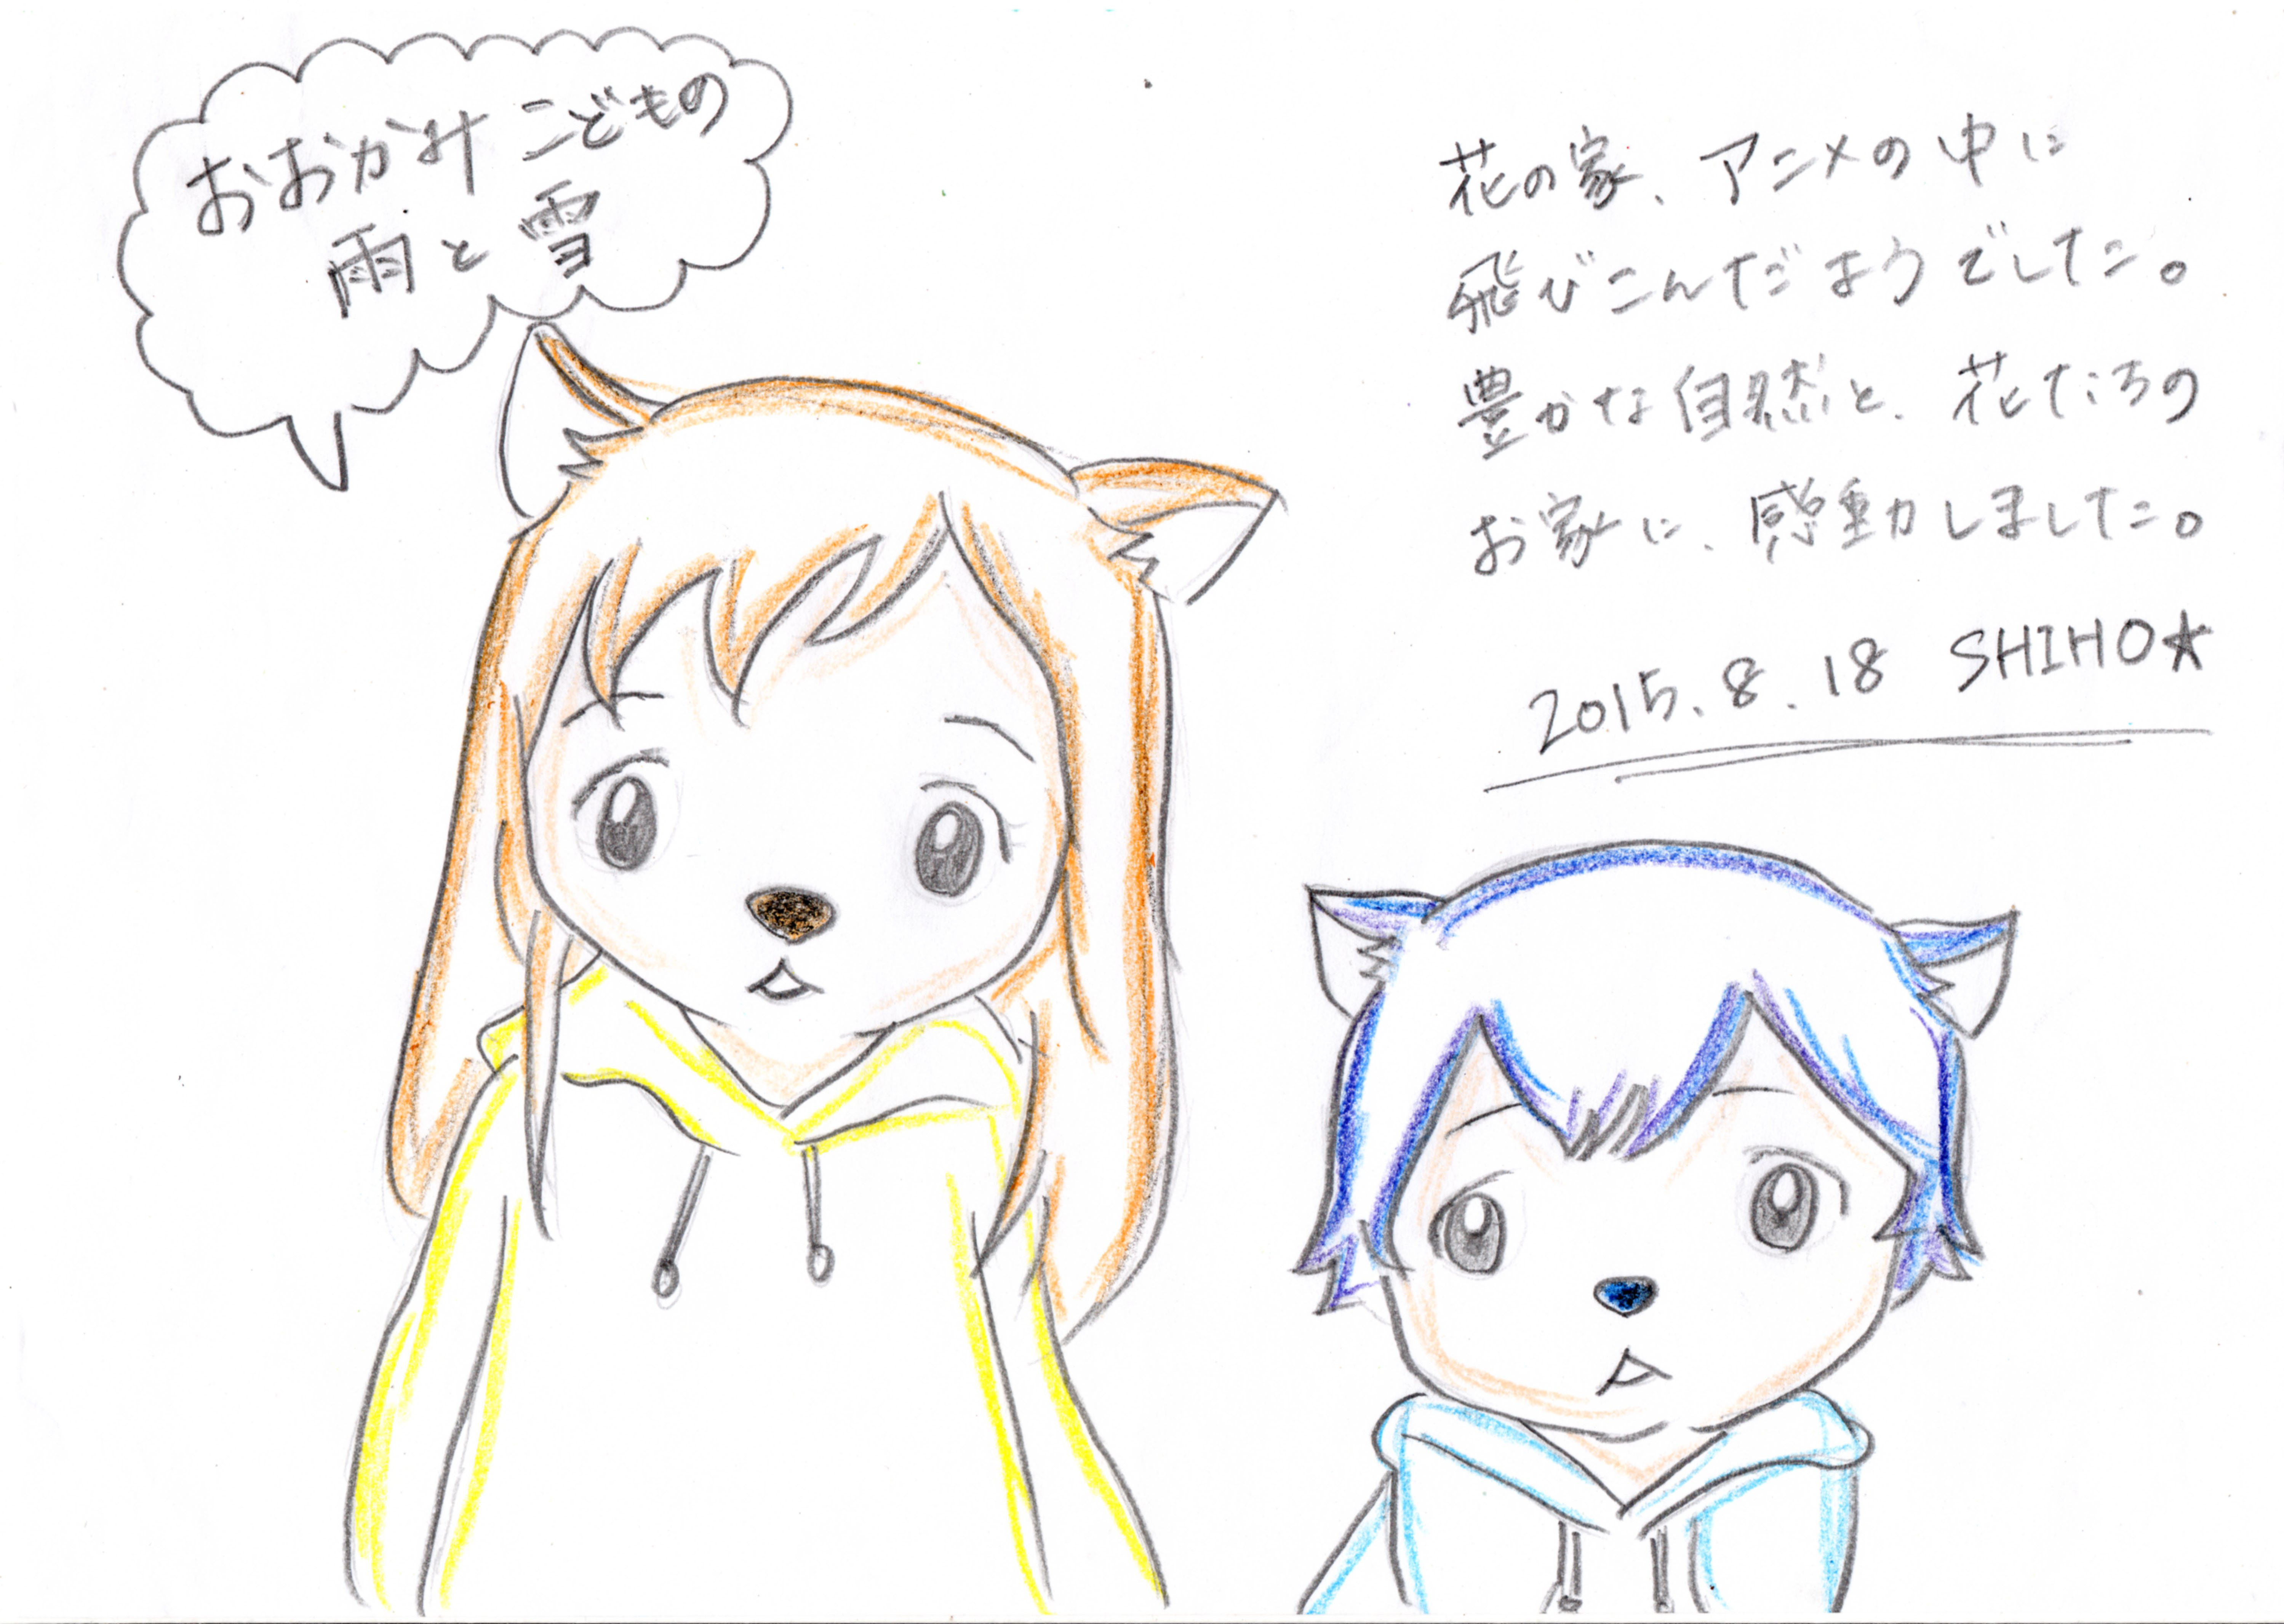 おおかみこどもの
雨と雪
花の家、アニメの中に
飛びこんだようでした。
豊かな自然と、花たちの
お家に、感動しました。
2015.8.18 SHIHO★